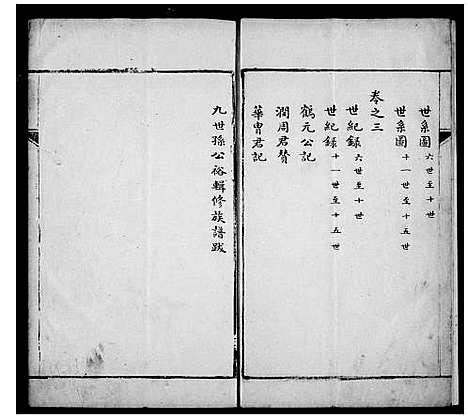 世系圖 六世至十世
世系圖 十一世至十五世
卷之三
世紀錄 六世至十世
世紀錄 十一世至十五世
鶴元公記
潤周君贊
華胄君記
九世孫公裕輯修族譜跋